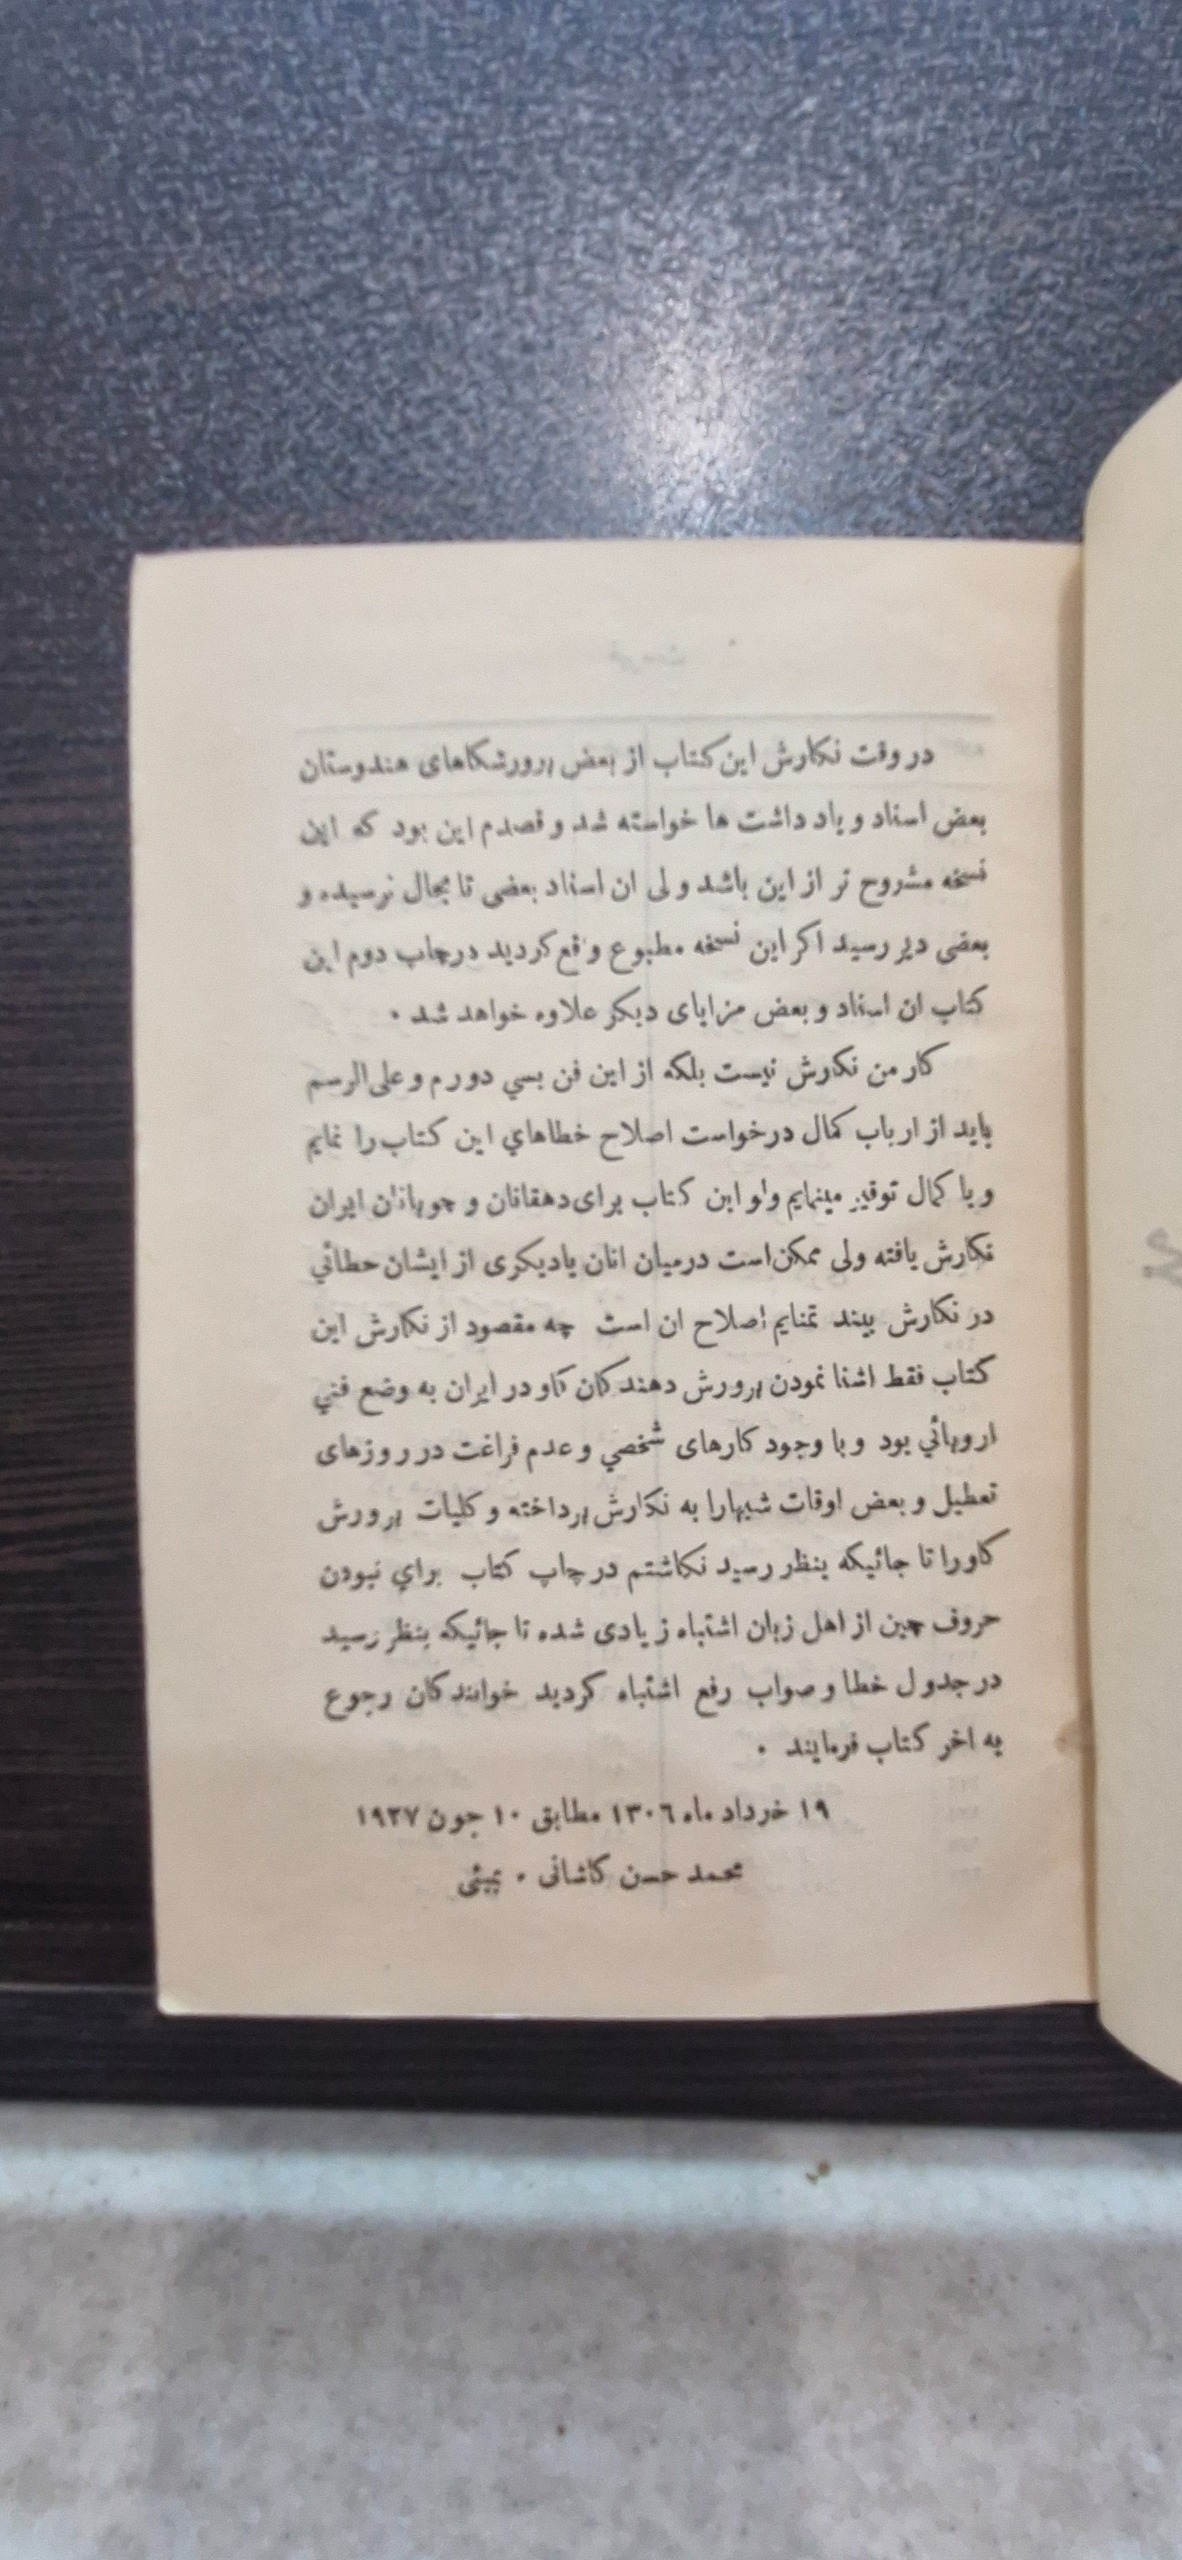 در وقت نکارش این کتاب از بعض پرورشکاهای هندوستان
بعض اسناد و یاد داشت ها خواسته شد و قصدم این بود که این
نسخه مشروح تر از این باشد ولی ان اسناد بعضی تا بحال نرسیده و
بعضی دیر رسید اکر این نسخه مطبوع واقع کردید درچاپ دوم این
کتاب ان اسناد و بعض مزایای دیکر علاوه خواهد شد ۰
کار من نکارش نیست بلکه از این فن بسي دورم و علی الرسم
باید از ارباب کمال درخواست اصلاح خطاهاي این کتاب را نمایم
و با کمال توقیر مینمایم ولو این کتاب برای دهقانان و چوپانان ایران
نکارش یافته ولی ممکن است درمیان انان یادیکری از ایشان خطائي
در نکارش بیند تمنایم اصلاح ان است چه مقصود از نکارش این
کتاب فقط اشنا نمودن پرورش دهندکان کاو در ایران به وضع فني
اروپائي بود و با وجود کارهای شخصي و عدم فراغت در روزهای
تعطیل و بعض اوقات شبهارا به نکارش پرداخته و کلیات پرورش
کاورا تا جائیکه بنظر رسید نکاشتم در چاپ کتاب براي نبودن
حروف چین از اهل زبان اشتباه زیادی شده تا جائیکه بنظر رسید
در جدول خطا و صواب رفع اشتباه کردید خوانندکان رجوع
به اخر کتاب فرمایند ۰
۱۹ خرداد ماه ۱۳۰٦ مطابق ۱۰ جون ۱۹۲۷
محمد حسن کاشانی ۰ بمبئی